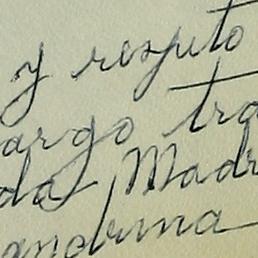 y respeto
argo tra
da Madr
andrina